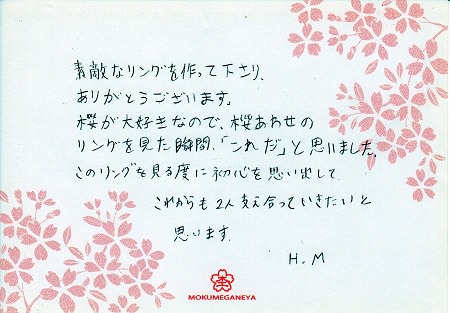 素敵なリングを作って下さり、
ありがとうございます。
桜が大好きなので、桜あわせの
リングを見た瞬間、「これだ」と思いました。
このリングを見る度に初心を思い出して
これからも2人支え合っていきたいと
思います。
H.M
MOKUMEGANEYA